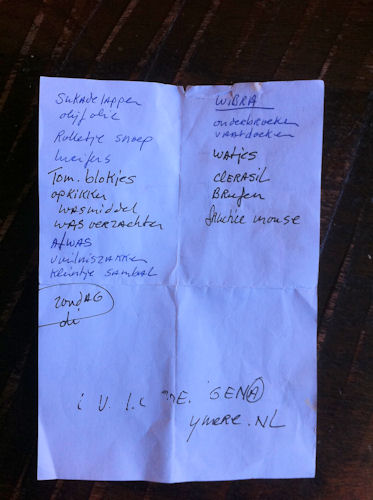 Sukadelappen
olijfolie
Rolletje snoep
lucifers
Tom. blokjes
opkikker
wasmiddel
WAS verzachter
AfWAS
vuilniszakken
Kleintje SAMBAL
zondAG
di
WiBRA
onderbroeken
vaatdoeken
watjes
CleRASil
Brufen
mouse
ymere.NL